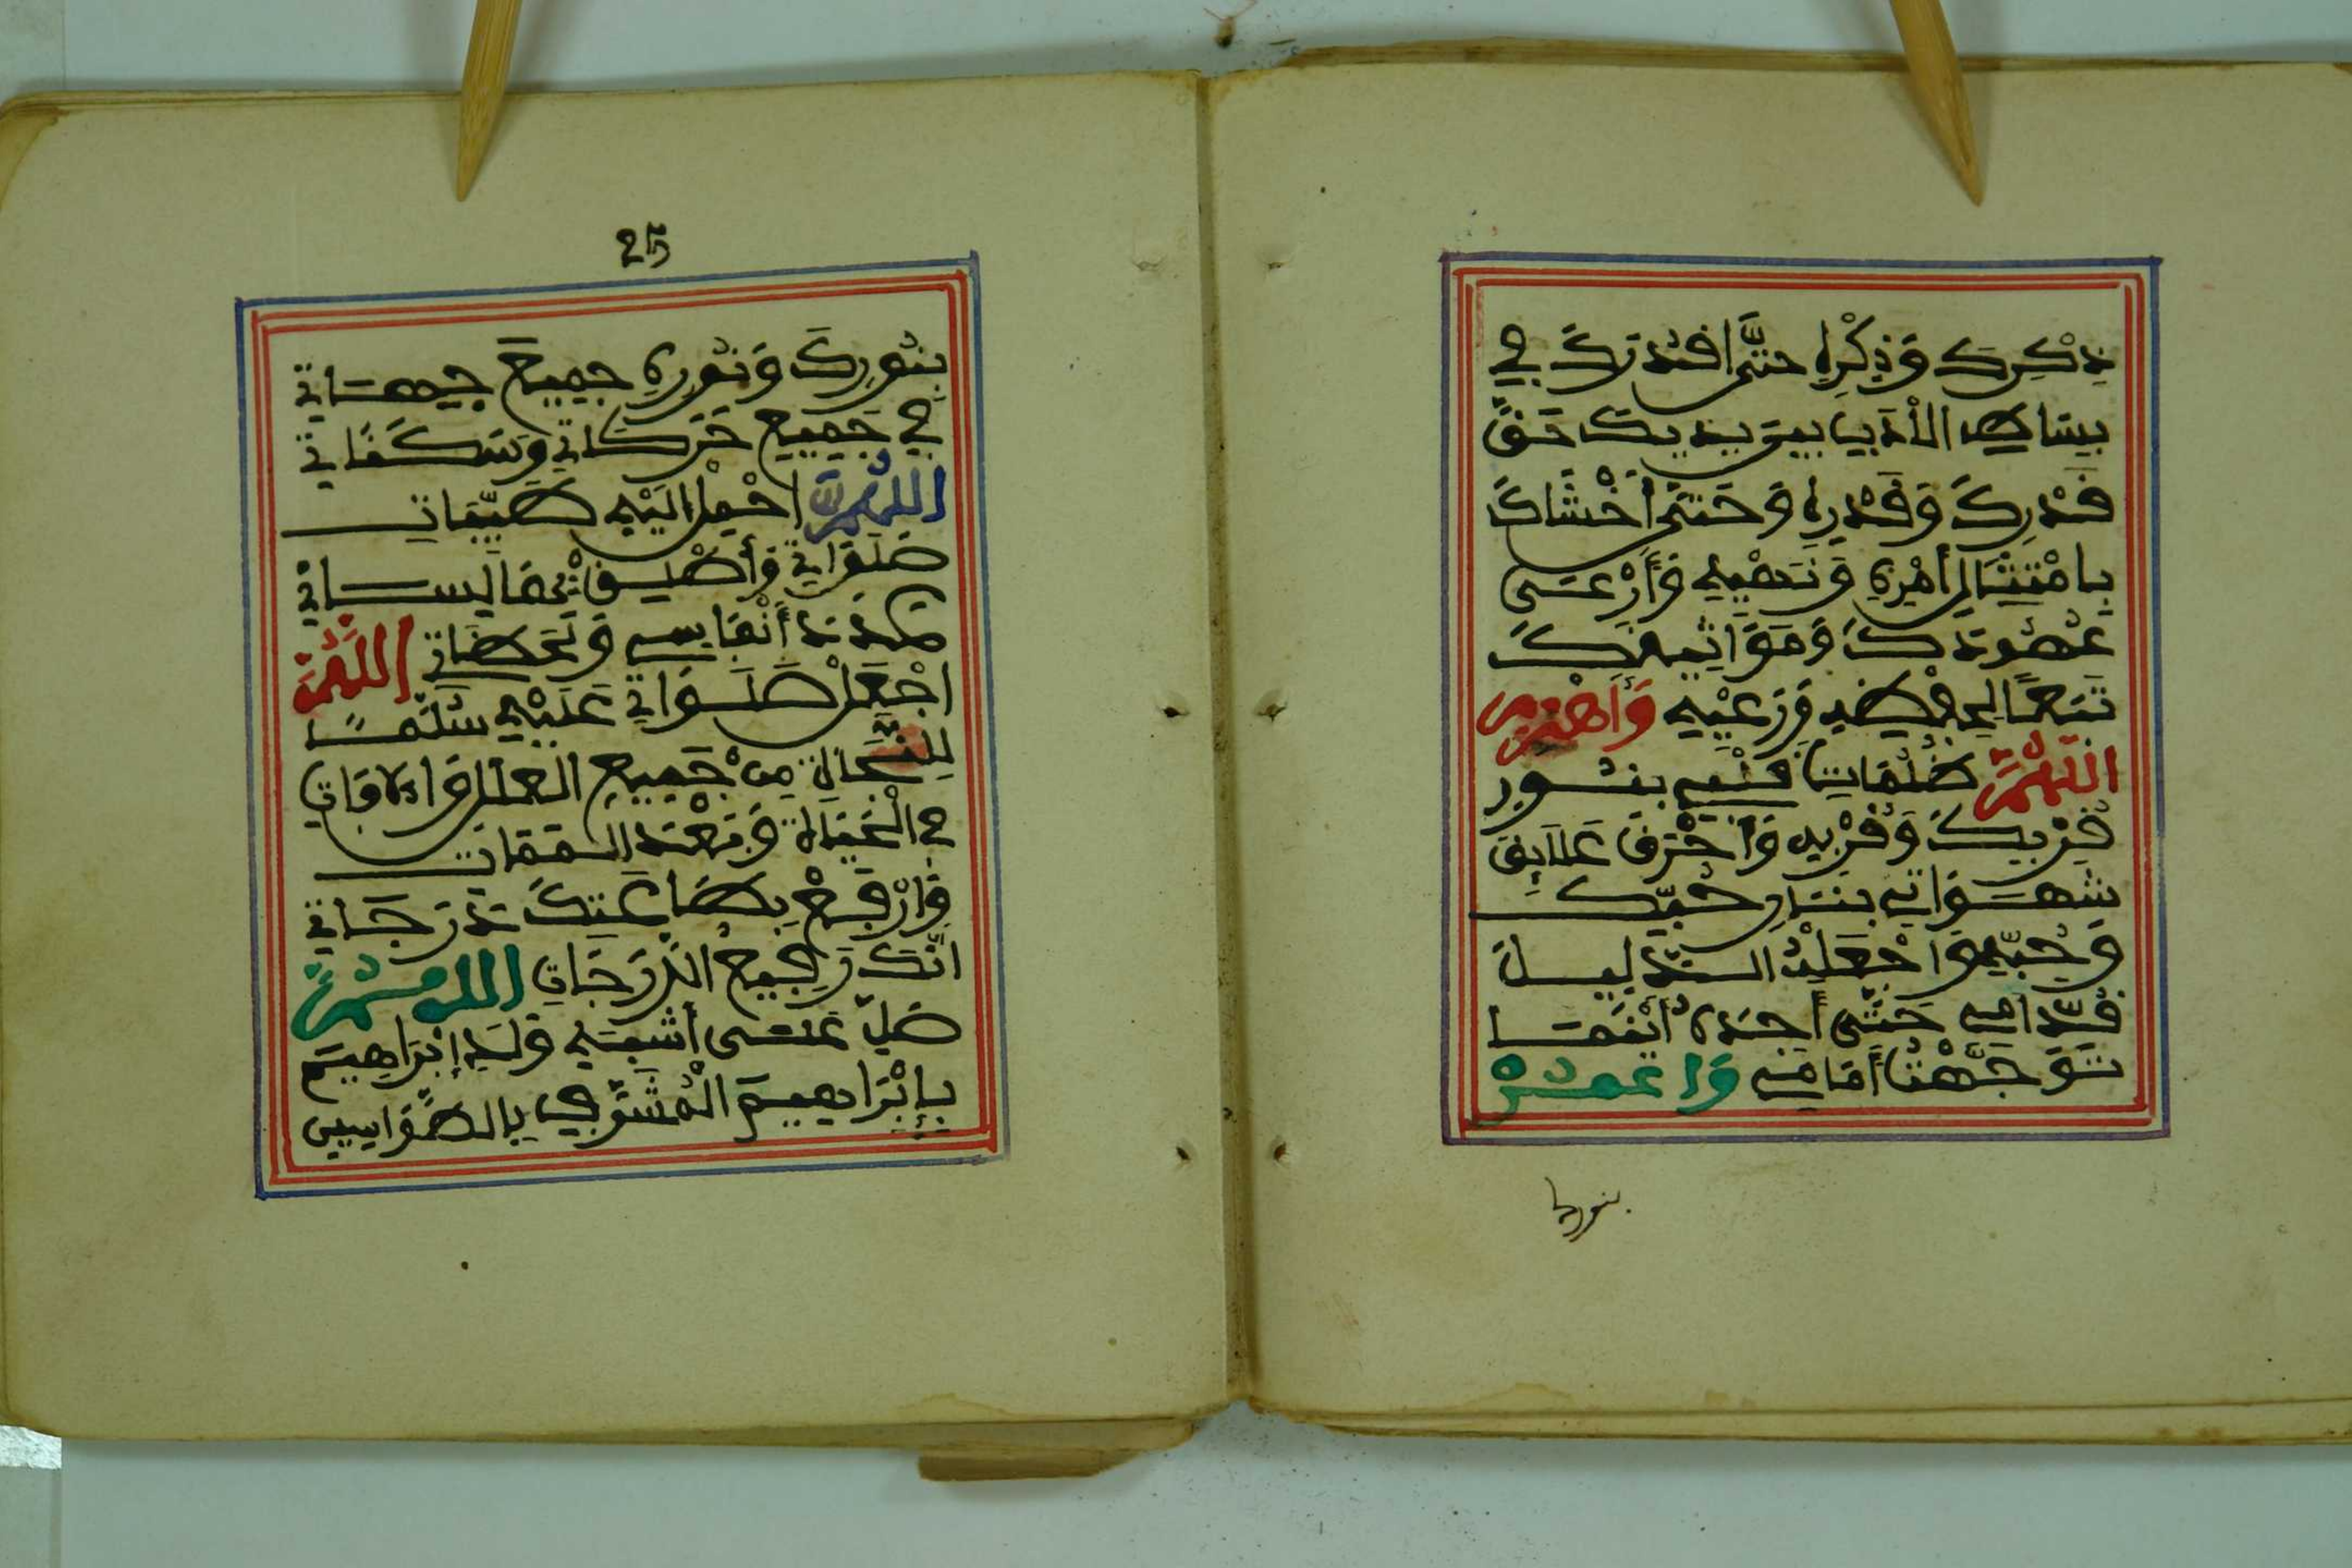 ذِكْرِكَ وَذِكْرِهِ حَتَّى افْدُرَكَ فِي
بِسَاطِ الْأَدَبِ بَيْنَ يَدَيْكَ حَقَّ
قَدْرِكَ وَقَدْرِهِ وَحَتَّى أَخْشَاكَ
بِامْتِثَالِ أَمْرِهِ وَنَهْيِهِ وَأَرْعَى
عُهُودَكَ وَمَوَاثِيقَكَ
تَبَعًا لِحِفْظِهِ وَرَعْيِهِ وَاهْزِمِ
اللَّهُمَّ ظُلُمَاتِ نَفْسِي بِنُورِ
قُرْبِكَ وَقُرْبِهِ وَأَحْرِقْ عَلَائِقَ
شَهَوَاتِي بِنَارِ حُبِّكَ
وَحُبِّهِ وَاجْعَلْهُ الدَّلِيلَ
قُدَّامِي حَتَّى أَجِدَهُ أَيْنَمَا
تَوَجَّهْتُ أَمَامِي وَاغْمُرْ
بنورك
25
بِنُورِكَ وَنُورِهِ جَمِيعَ جِهَاتِي
فِي جَمِيعِ حَرَكَاتِي وَسَكَنَاتِي
اللَّهُمَّ احْمِلْ إِلَيْهِ طَيِّبَاتِ
صَلَوَاتِي وَأَطْلِقْ بِهَا لِسَانِي
عَدَدَ أَنْفَاسِي وَلَحَظَاتِي اللَّهُمَّ
اجْعَلْ صَلَوَاتِي عَلَيْهِ سُلَّمًا
لِلنَّجَاةِ مِنْ جَمِيعِ الْعِلَلِ وَالْآفَاتِ
فِي الْحَيَاةِ وَبَعْدَ الْمَمَاتِ
وَارْفَعْ بِطَاعَتِكَ دَرَجَاتِي
إِنَّكَ رَفِيعُ الدَّرَجَاتِ اللَّهُمَّ
صَلِّ عَلَى أَشْبَهِ وَلَدِ إِبْرَاهِيمَ
بِإِبْرَاهِيمَ الْمُشَرَّفِ بِالطَّوَاسِينِ